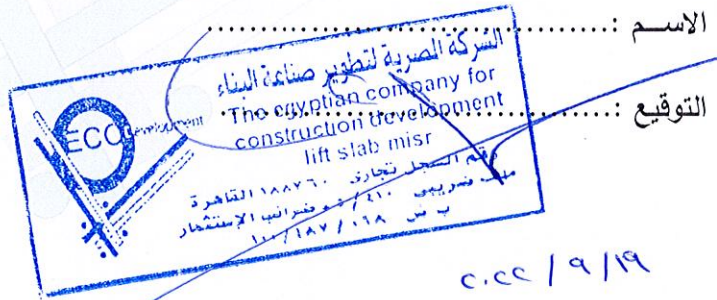 الاســم :................................
التوقيع :................................
ECO Development
الشركة المصرية لتطوير صناعة البناء
The egyptian company for
construction development
lift slab misr
رقم السجل تجارى ١٨٨٧٦٠ القاهرة
ملف ضريبى ٤١٠ / ٥ ضرائب الإستثمار
ب ض ٠٦٨ / ١٨٧ / ١٠٠
٢٠٢٢ / ٩ / ١٩